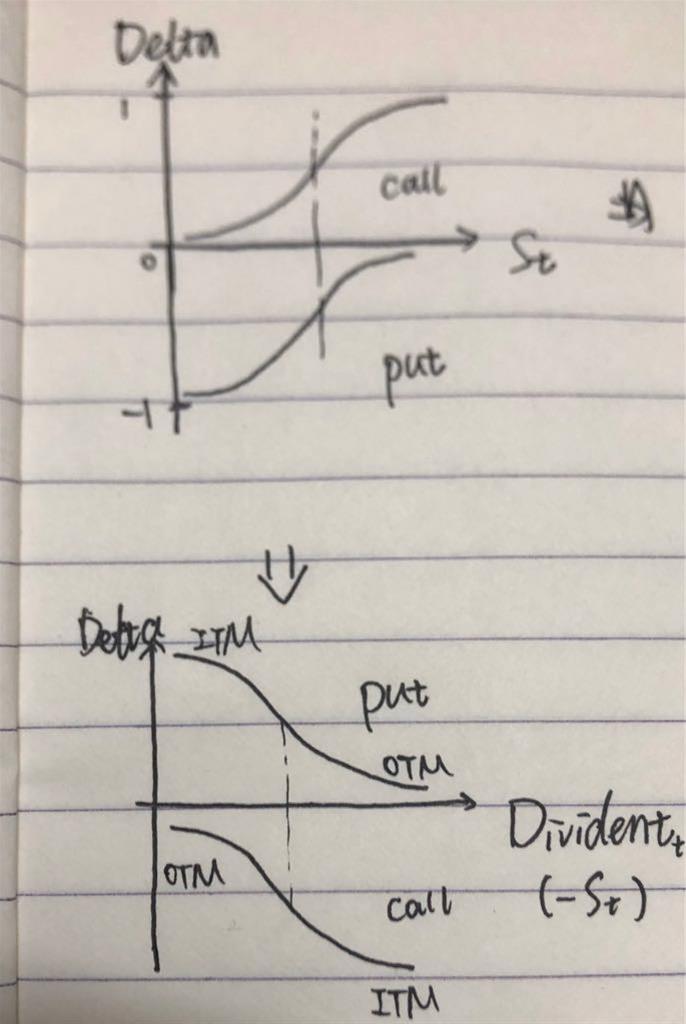 Delta
1
call
0
St
put
-1
Delta ITM
put
OTM
Dividentt
OTM
call
(-St)
ITM